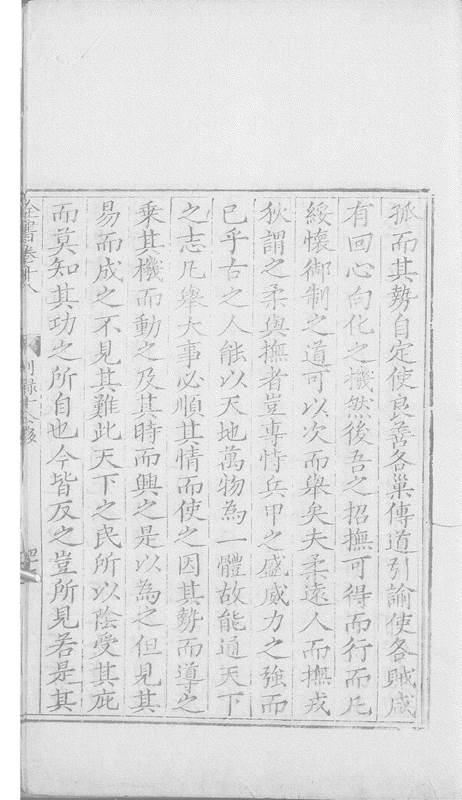 孤而其勢自定使良善各巢傳道引諭使各賊咸
有回心向化之機然後吾之招撫可得而行而凡
綏懷御制之道可以次而舉矣夫柔遠人而撫戎
狄謂之柔與撫者豈專恃兵甲之盛威力之強而
已乎古之人能以天地萬物為一體故能通天下
之志凡舉大事必順其情而使之因其勢而導之
乘其機而動之及其時而興之是以為之但見其
易而成之不見其難此天下之民所以陰受其庇
而莫知其功之所自也今皆反之豈所見若是其
全書卷十八
別錄十